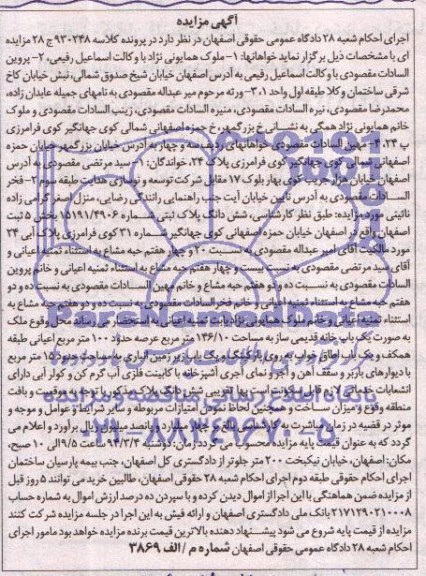 آگهی مزایده
اجرای احکام شعبه ۲۸ دادگاه عمومی حقوقی اصفهان در نظر دارد در پرونده کلاسه ۹۳۰۲۴۸ ج ۲۸ مزایده
ای با مشخصات ذیل برگزار نماید خواهانها: ۱- ملوک همایونی نژاد با وکالت اسماعیل رفیعی، ۲- پروین
السادات مقصودی با وکالت اسماعیل رفیعی به آدرس اصفهان خیابان شیخ صدوق شمالی، نبش خیابان کاخ
شرقی ساختمان وکلا طبقه اول واحد ۳۰۱- ورثه مرحوم میر عبداله مقصودی به نامهای جمیله عابدان زاده،
محمدرضا مقصودی، نیره السادات مقصودی، منیره السادات مقصودی، زینب السادات مقصودی و ملوک
خانم همایونی نژاد همگی به نشانی خ بزرگمهر، خ حمزه اصفهانی شمالی کوی جهانگیر کوی فرامرزی
پ ۲۴، ۴- مهین السادات مقصودی خواهانهای ردیف سه و چهار به آدرس خیابان بزرگمهر خیابان حمزه
اصفهانی شمالی کوی جهانگیر کوی فرامرزی پلاک ۲۴، خواندگان: ۱- سید مرتضی مقصودی به آدرس
اصفهان خیابان هزار جریب کوی بهار بلوک ۱۷ مقابل شرکت توسعه و نوسازی هدایت طبقه سوم ۲- فخر
السادات مقصودی به آدرس نایین خیابان آیت جنب راهنمایی رانندگی رضایی، منزل اصغر گرامی زاده
نائینی مورد مزایده: طبق نظر کارشناسی، شش دانگ پلاک ثبتی شماره ۱۵۱۹۱/۴۹۰۶ بخش ۵ ثبت
اصفهان واقع در اصفهان خیابان حمزه اصفهانی کوی جهانگیر شماره ۳۱ کوی فرامرزی پلاک آبی ۲۴
مورد مالکیت آقای امیر عبداله مقصودی به نسبت ۲۰ و چهار هفتم حبه مشاع به استثناء ثمنیه اعیانی و
آقای سید مرتضی مقصودی به نسبت بیست و چهار هفتم حبه مشاع به استثناء ثمنیه اعیانی و خانم پروین
السادات مقصودی به نسبت ده و دو هفتم حبه مشاع و خانم مهین السادات مقصودی به نسبت ده و دو
هفتم حبه مشاع به استثناء ثمنیه اعیانی و خانم فخرالسادات مقصودی به نسبت ده و دو هفتم حبه مشاع به
استثناء ثمنیه اعیانی و خانم ملوک همایونی نژاد بابت ثمنیه اعیانی به استحضار می رساند محل وقوع ملک
به صورت یک باب خانه قدیمی ساز به مساحت ۱۴۶/۱۰ متر مربع عرصه حدود ۱۰۰ متر مربع اعیانی طبقه
همکف و یک باب اطاق خواب به روی پارکینگ و یک باب زیرزمین انباری به مساحت حدود ۱۵ متر مربع
با دیوارهای باربر و سقف آهن و آجر و نمای آجری آشپزخانه با کابینت فلزی آب گرم کن و کولر آبی دارای
انشعابات خدماتی و قابل سکونت است بها تقریبی شش دانگ پلاک مذکور با توجه به موقعیت و بافت
منطقه وقوع و میزان ساخت و همچنین لحاظ نمودن امتیازات مربوطه و سایر شرایط و عوامل و موجه و
موثر در قضیه در زمان مباشرت به کارشناسی مبلغ چهار میلیارد و پانصد میلیون ریال برآورد و اعلام می
گردد که به عنوان قیمت پایه مزایده محسوب می گردد؛ زمان: دوشنبه ۹۴/۳/۴ ساعت ۹/۵ الی ۱۰ صبح،
مکان: اصفهان، خیابان نیکبخت ۲۰۰ متر جلوتر از دادگستری کل اصفهان، جنب بیمه پارسیان ساختمان
اجرای احکام حقوقی طبقه دوم اجرای احکام شعبه ۲۸ حقوقی اصفهان، طالبین خرید می توانند ۵ روز قبل
از مزایده ضمن هماهنگی با این اجرا از اموال دیدن کرده و با سپردن ده درصد ارزش اموال به شماره حساب
۲۱۷۱۲۹۰۲۱۰۰۰۸ بانک ملی دادگستری اصفهان و ارائه فیش به این اجرا در جلسه مزایده شرکت کنند
مزایده از قیمت پایه شروع می شود پیشنهاد دهنده بالاترین قیمت برنده مزایده خواهد بود مامور اجرای
احکام شعبه ۲۸ دادگاه عمومی حقوقی اصفهان شماره م / الف ۳۸۶۹
ParsNamadData
پایگاه اطلاع رسانی مناقصه و مزایده
۰۲۱-۸۸۳۴۹۶۷۰-۵